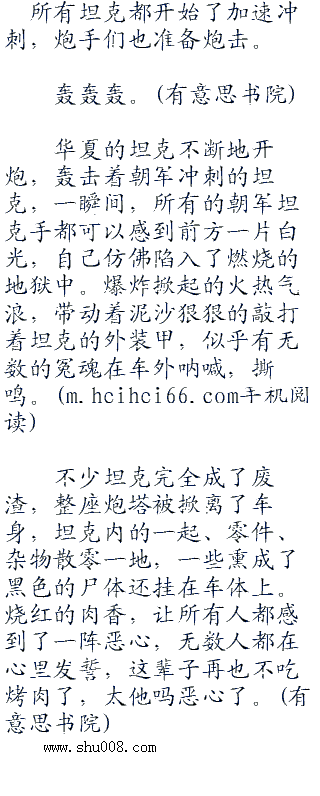 所有坦克都开始了加速冲
刺，炮手们也准备炮击。
轰轰轰。(有意思书院)
华夏的坦克不断地开
炮，轰击着朝军冲刺的坦
克，一瞬间，所有的朝军坦
克手都可以感到前方一片白
光，自己仿佛陷入了燃烧的
地狱中。爆炸掀起的火热气
浪，带动着泥沙狠狠的敲打
着坦克的外装甲，似乎有无
数的冤魂在车外呐喊，撕
鸣。(m.hcihci66.com手机阅
读)
不少坦克完全成了废
渣，整座炮塔被掀离了车
身，坦克内的一起、零件、
杂物散零一地，一些熏成了
黑色的尸体还挂在车体上。
烧红的肉香，让所有人都感
到了一阵恶心，无数人都在
心里发誓，这辈子再也不吃
烤肉了，太他吗恶心了。(有
意思书院)
www.shu008.com